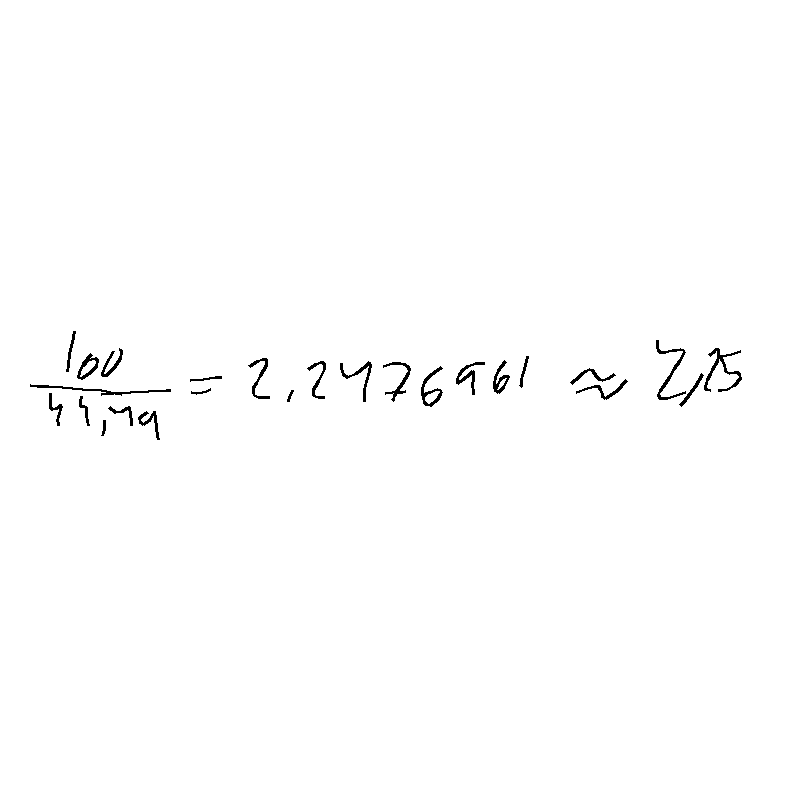 100/44,49 = 2,2476961 ≈ 2,25